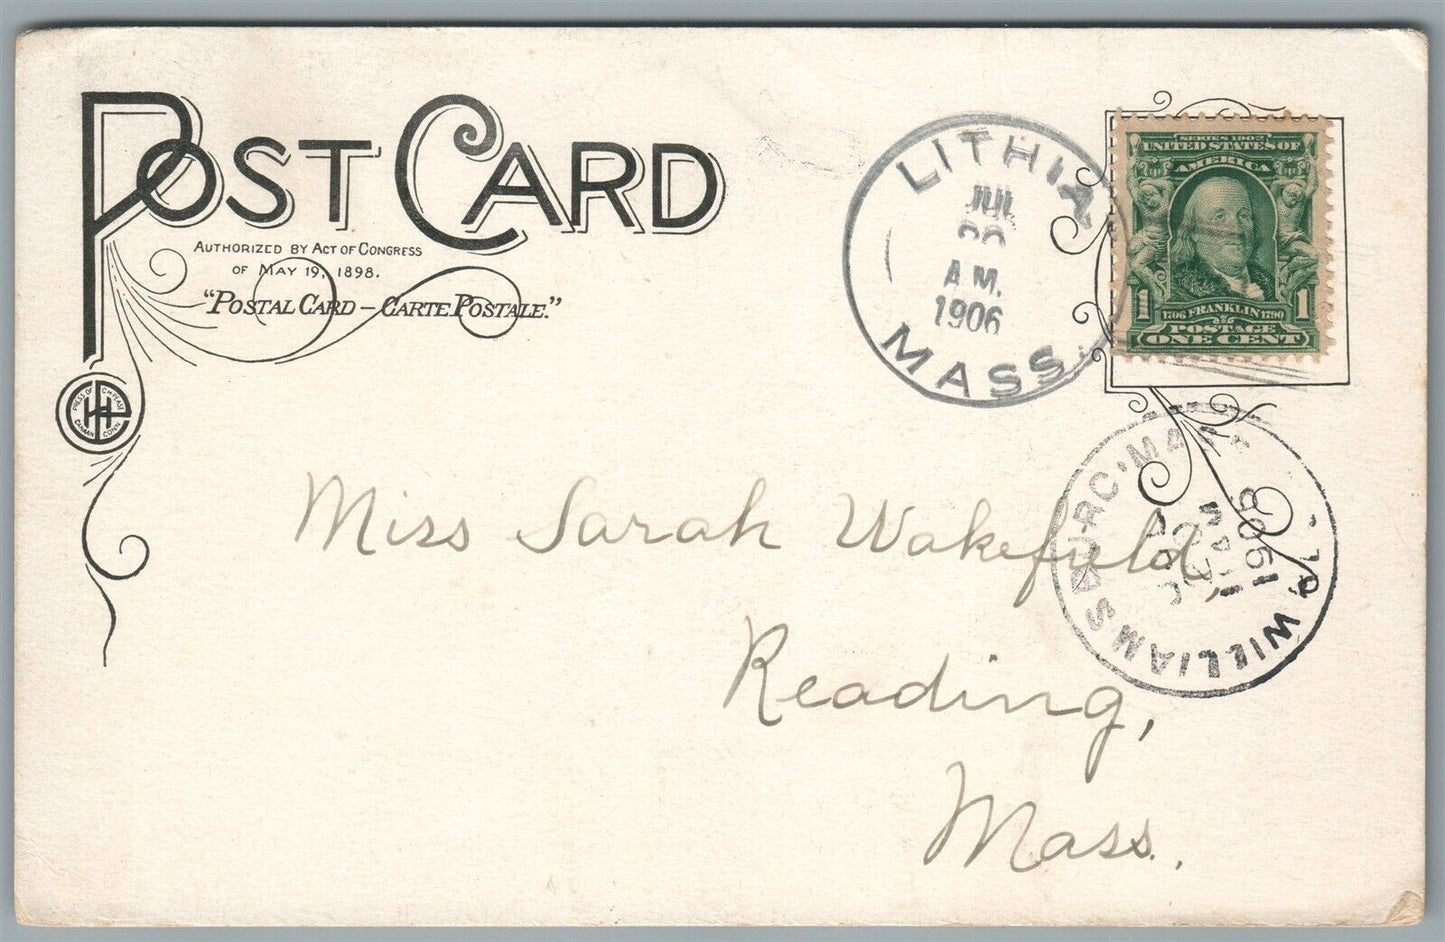 POST CARD
AUTHORIZED BY ACT OF CONGRESS
OF MAY 19, 1898.
"POSTAL CARD – CARTE POSTALE."
LITHIA
JUL
A M.
1906
MASS.
SERIES 1902
UNITED STATES OF
AMERICA
1 1
1706 FRANKLIN 1790
POSTAGE
ONE CENT
PRESS OF
DANBURY CONN
WILLIAMSBURG
1906
Miss Sarah Wakefield
Reading,
Mass.